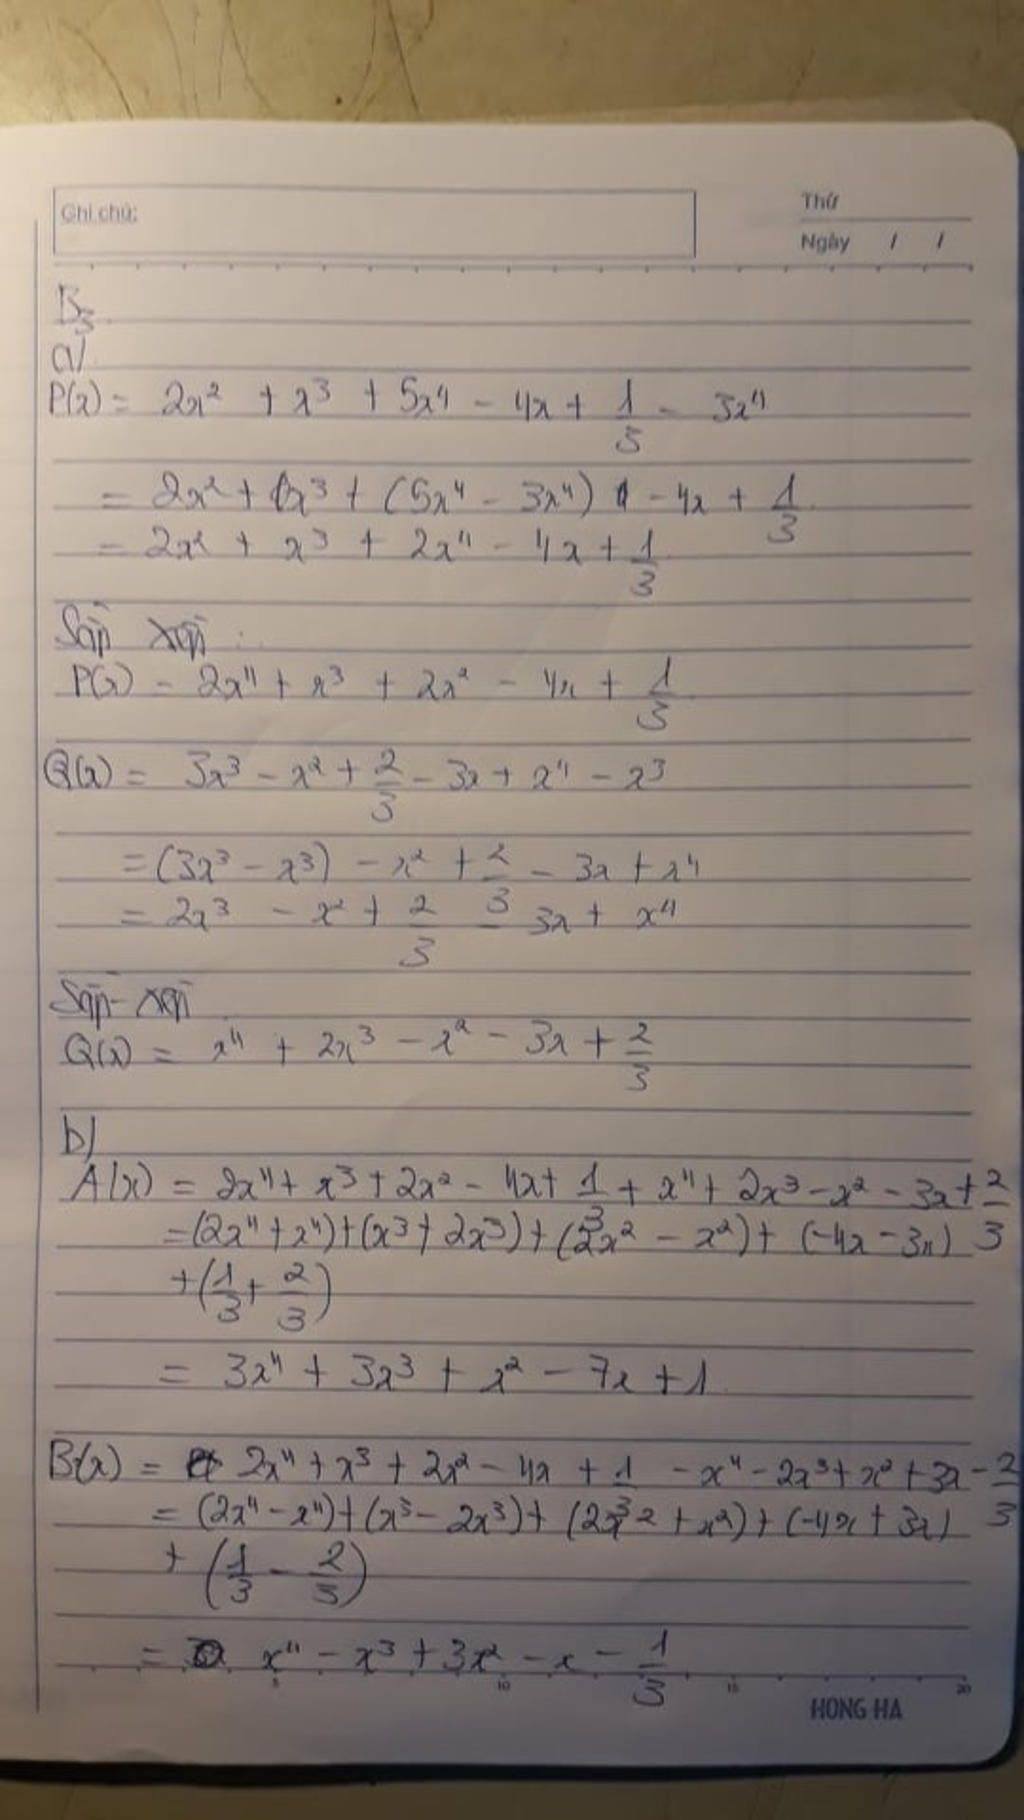 Ghi chú:
Thứ
Ngày / /
B3
a)
P(x) = 2x² + x³ + 5x⁴ - 4x + 1/3 - 3x⁴
= 2x² + x³ + (5x⁴ - 3x⁴) - 4x + 1/3
= 2x² + x³ + 2x⁴ - 4x + 1/3
Sắp xếp:
P(x) - 2x⁴ + x³ + 2x² - 4x + 1/3
Q(x) = 3x³ - x² + 2/3 - 3x + x⁴ - x³
= (3x³ - x³) - x² + 2/3 - 3x + x⁴
= 2x³ - x² + 2/3 - 3x + x⁴
Sắp xếp
Q(x) = x⁴ + 2x³ - x² - 3x + 2/3
b)
A(x) = 2x⁴ + x³ + 2x² - 4x + 1/3 + x⁴ + 2x³ - x² - 3x + 2/3
= (2x⁴ + x⁴) + (x³ + 2x³) + (2x² - x²) + (-4x - 3x)
+ (1/3 + 2/3)
= 3x⁴ + 3x³ + x² - 7x + 1
B(x) = 2x⁴ + x³ + 2x² - 4x + 1/3 - x⁴ - 2x³ + x² + 3x - 2/3
= (2x⁴ - x⁴) + (x³ - 2x³) + (2x² + x²) + (-4x + 3x)
+ (1/3 - 2/3)
= x⁴ - x³ + 3x² - x - 1/3
5 10 15 20
HONG HA